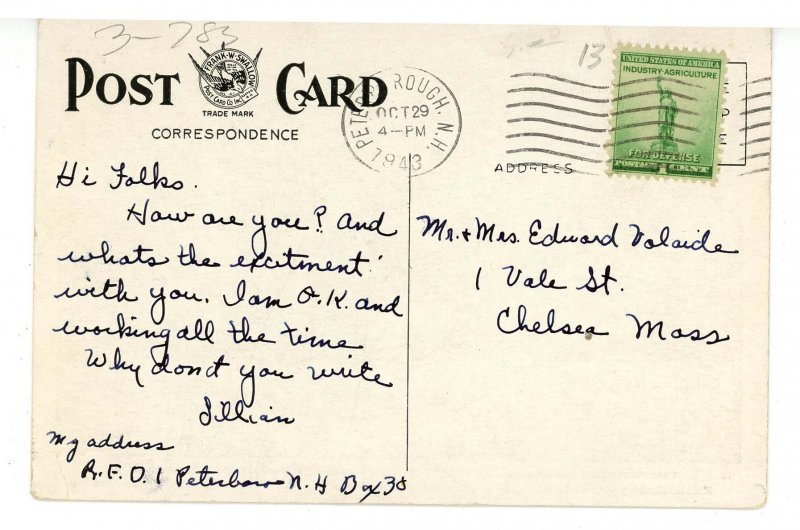 3-783
13
POST CARD
FRANK·W·SWALLOW
POST CARD CO INC
TRADE MARK
CORRESPONDENCE
PETERBOROUGH, N.H.
OCT 29
4-PM
1943
UNITED STATES OF AMERICA
INDUSTRY·AGRICULTURE
FOR DEFENSE
POSTAGE 1 CENT
ADDRESS
Hi Folks.
How are you? And
whats the excitment
with you. I am O.K. and
working all the time
Why don't you write
Lillian
My address
R.F.D. 1 Peterboro N.H Box 38
Mr. + Mrs. Edward
1 Vale St.
Chelsea Mass